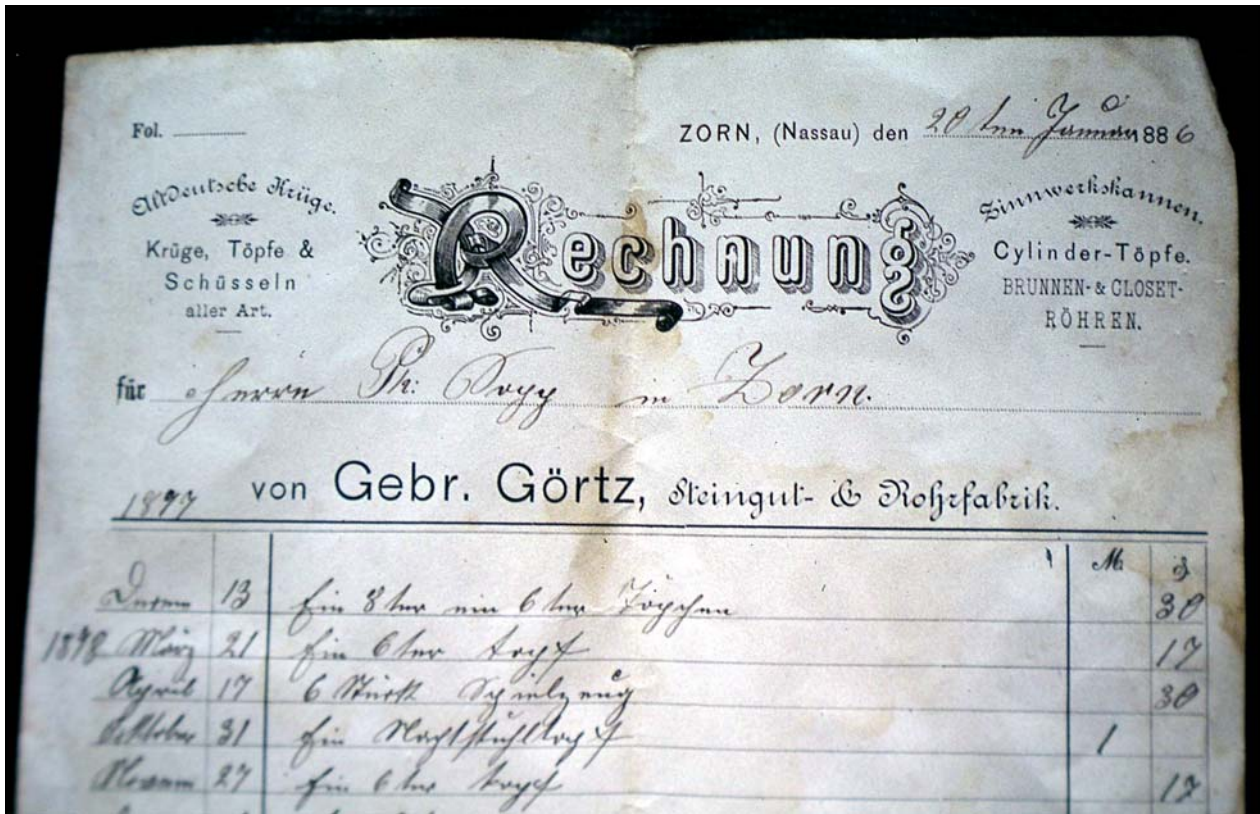 Fol.
ZORN, (Nassau) den 20ten Januar 1886
Altdeutsche Krüge.
Krüge, Töpfe &
Schüsseln
aller Art.
Rechnung
Zinnwerkskannen.
Cylinder-Töpfe.
BRUNNEN- & CLOSET-
RÖHREN.
für Herrn Ph: Sopp in Zorn.
von Gebr. Görtz, Steingut- & Rohrfabrik.
1897
M
13 Ein 8ter ein 6ter Töpchen 30
1898 März 21 Ein 6ter Topf 17
April 17 6 Stück Spielzeug 30
Oktober 31 Ein Nachtstuhltopf 1
Novemm 27 Ein 6ter Topf 17